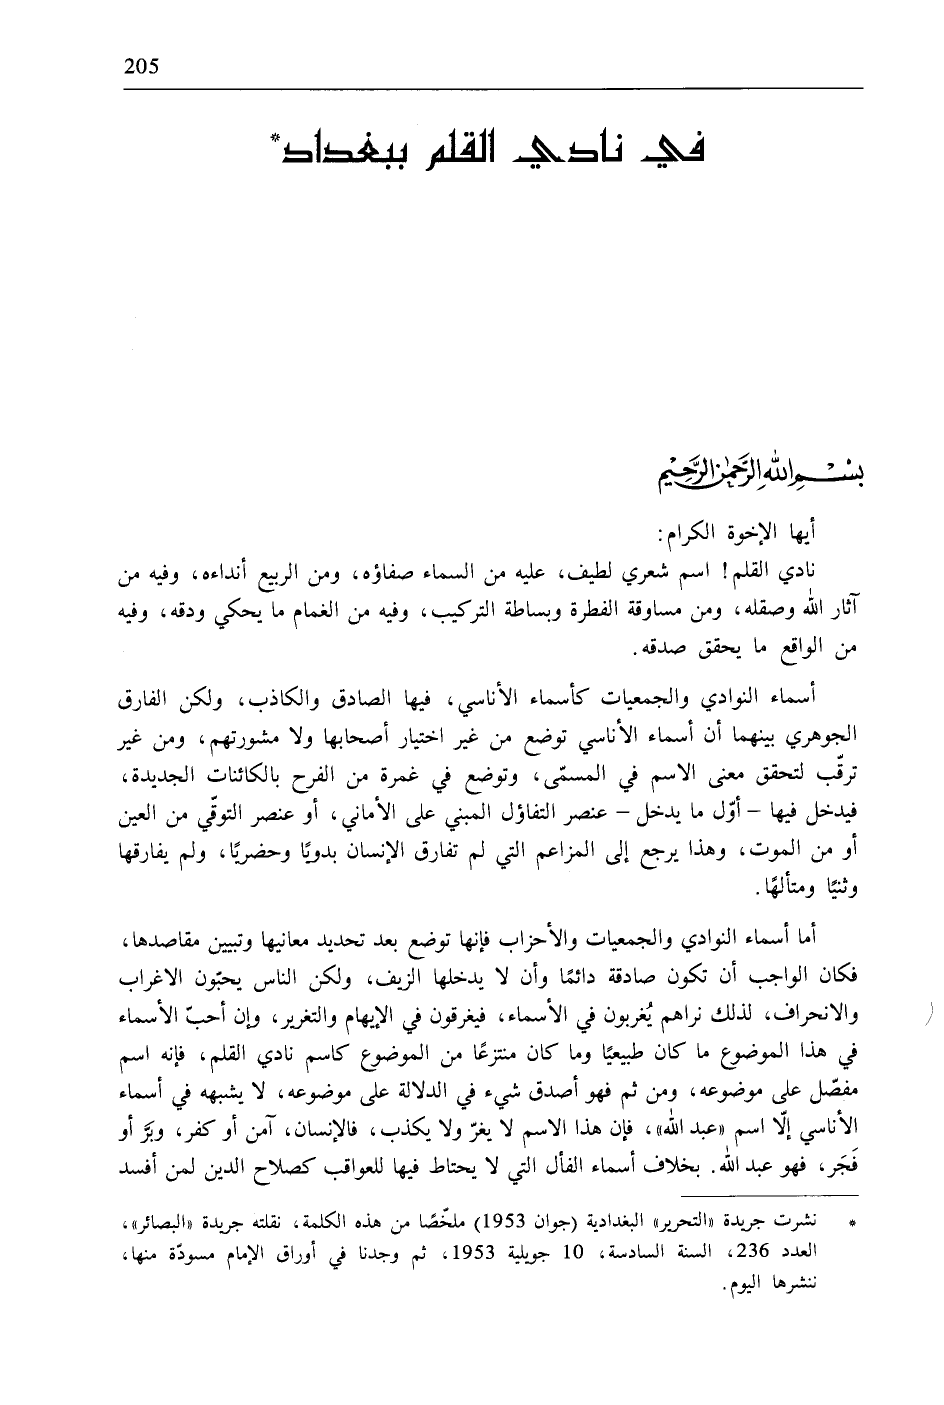 205
في نادي القلم ببغداد*
بسم الله الرَّحمٰن الرَّحِيم
أيها الإخوة الكرام:
نادي القلم! اسم شعري لطيف، عليه من السماء صفاؤه، ومن الربيع أنداءه، وفيه من
آثار الله وصقله، ومن مساوقة الفطرة وبساطة التركيب، وفيه من الغمام ما يحكي ودقه، وفيه
من الواقع ما يحقق صدقه.
أسماء النوادي والجمعيات كأسماء الأناسي، فيها الصادق والكاذب، ولكن الفارق
الجوهري بينهما أن أسماء الأناسي توضع من غير اختيار أصحابها ولا مشورتهم، ومن غير
ترقّب لتحقق معنى الاسم في المسمّى، وتوضع في غمرة من الفرح بالكائنات الجديدة،
فيدخل فيها – أوّل ما يدخل – عنصر التفاؤل المبني على الأماني، أو عنصر التوقّي من العين
أو من الموت، وهذا يرجع إلى المزاعم التي لم تفارق الإنسان بدويًا وحضريًا، ولم يفارقها
وثنيًا ومتألهًا.
أما أسماء النوادي والجمعيات والأحزاب فإنها توضع بعد تحديد معانيها وتبيين مقاصدها،
فكان الواجب أن تكون صادقة دائمًا وأن لا يدخلها الزيف، ولكن الناس يحبّون الاغراب
والانحراف، لذلك نراهم يُغربون في الأسماء، فيغرقون في الإيهام والتغرير، وإن أحبّ الأسماء
في هذا الموضوع ما كان طبيعيًا وما كان منتزعًا من الموضوع كاسم نادي القلم، فإنه اسم
مفصّل على موضوعه، ومن ثم فهو أصدق شيء في الدلالة على موضوعه، لا يشبهه في أسماء
الأناسي إلّا اسم «عبد الله»، فإن هذا الاسم لا يغرّ ولا يكذب، فالإنسان، آمن أو كفر، وبَرَّ أو
فَجَر، فهو عبد الله. بخلاف أسماء الفأل التي لا يحتاط فيها للعواقب كصلاح الدين لمن أفسد
* نشرت جريدة «التحرير» البغدادية (جوان 1953) ملخّصًا من هذه الكلمة، نقلته جريدة «البصائر»،
العدد 236، السنة السادسة، 10 جويلية 1953، ثم وجدنا في أوراق الإمام مسودّة منها،
ننشرها اليوم.